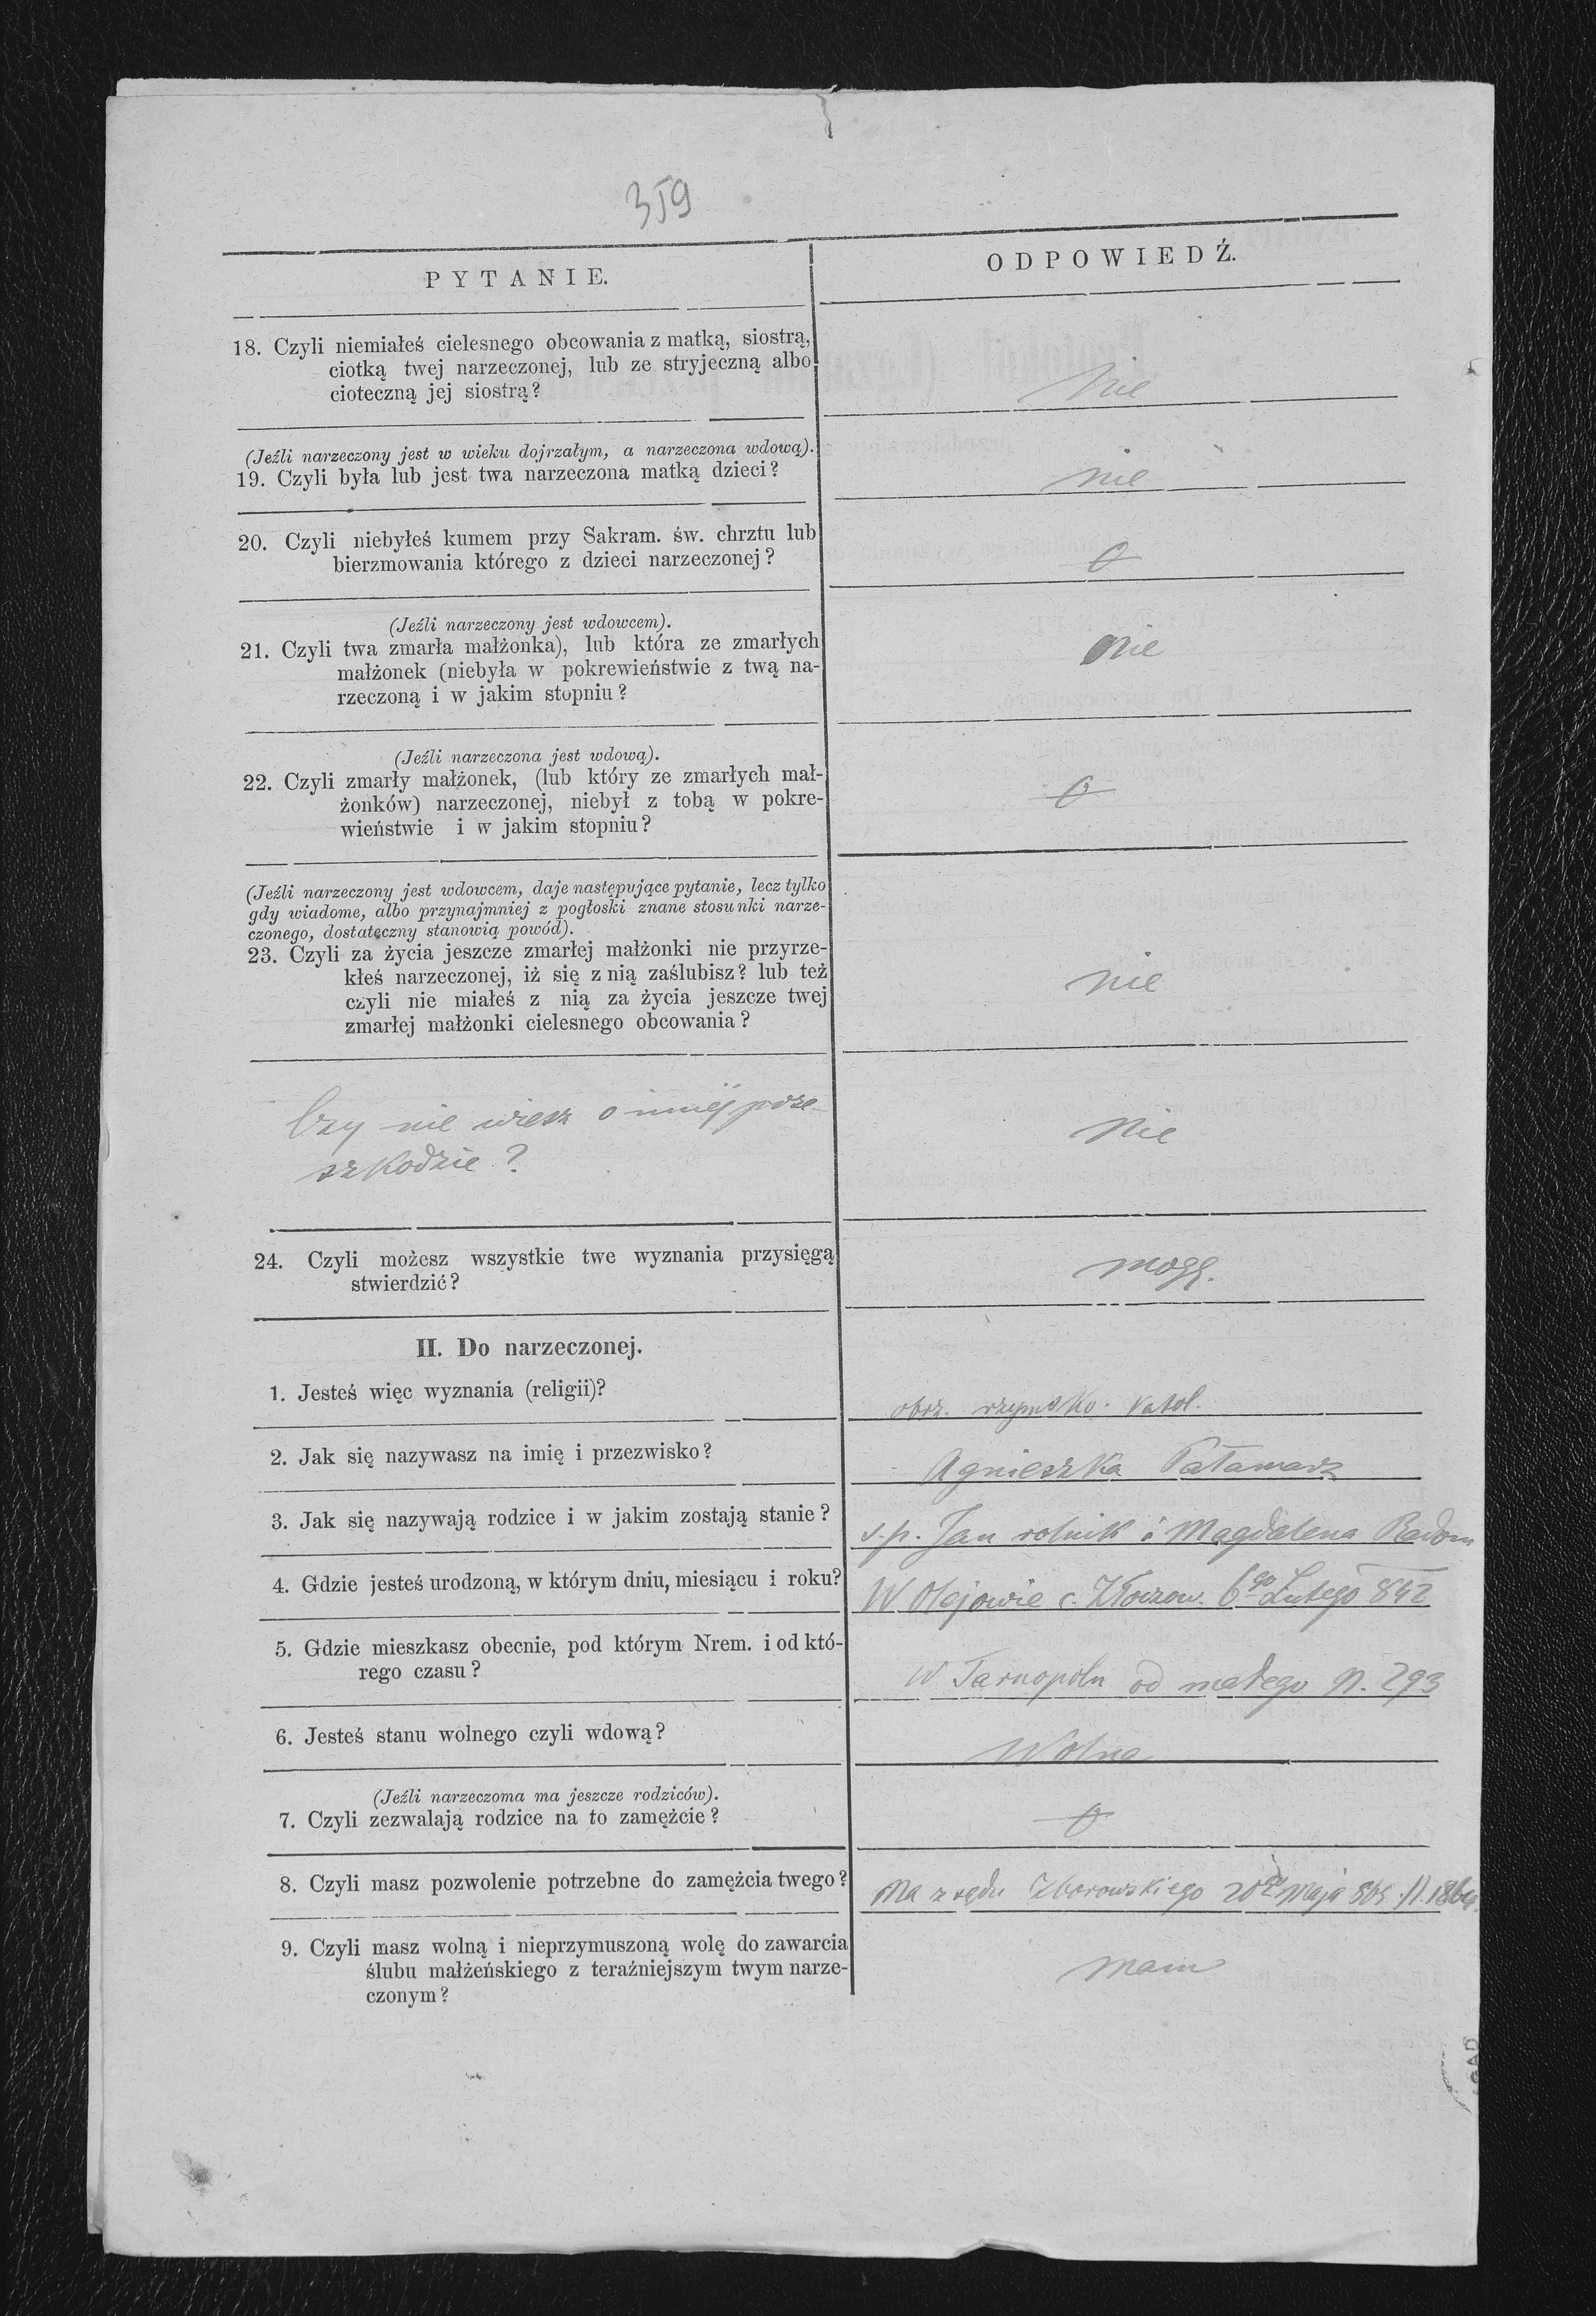 359
PYTANIE.
ODPOWIEDŹ.
18. Czyli niemiałeś cielesnego obcowania z matką, siostrą,
ciotką twej narzeczonej, lub ze stryjeczną albo
cioteczną jej siostrą?
Nie
(Jeźli narzeczony jest w wieku dojrzałym, a narzeczona wdową).
19. Czyli była lub jest twa narzeczona matką dzieci?
nie
20. Czyli niebyłeś kumem przy Sakram. św. chrztu lub
bierzmowania którego z dzieci narzeczonej?
0
(Jeźli narzeczony jest wdowcem).
21. Czyli twa zmarła małżonka), lub która ze zmarłych
małżonek (niebyła w pokrewieństwie z twą na-
rzeczoną i w jakim stopniu?
nie
(Jeźli narzeczona jest wdową).
22. Czyli zmarły małżonek, (lub który ze zmarłych mał-
żonków) narzeczonej, niebył z tobą w pokre-
wieństwie i w jakim stopniu?
0
(Jeźli narzeczony jest wdowcem, daje następujące pytanie, lecz tylko
gdy wiadome, albo przynajmniej z pogłoski znane stosunki narze-
czonego, dostatęczny stanowią powód).
23. Czyli za życia jeszcze zmarłej małżonki nie przyrze-
kłeś narzeczonej, iż się z nią zaślubisz? lub też
czyli nie miałeś z nią za życia jeszcze twej
zmarłej małżonki cielesnego obcowania?
nie
Czy nie wiesz o innéj prze-
szkodzie?
Nie
24. Czyli możesz wszystkie twe wyznania przysięgą
stwierdzić?
mogę.
II. Do narzeczonej.
1. Jesteś więc wyznania (religii)?
obrz. rzymsko. katol.
2. Jak się nazywasz na imię i przezwisko?
Agnieszka Pałamarz
3. Jak się nazywają rodzice i w jakim zostają stanie?
s.p. Jan rolnik i Magdalena Radom
4. Gdzie jesteś urodzoną, w którym dniu, miesiącu i roku?
W Olejowie c. Złoczow. 6go Lutego 842
5. Gdzie mieszkasz obecnie, pod którym Nrem. i od któ-
rego czasu?
W Tarnopolu od małego N. 293
6. Jesteś stanu wolnego czyli wdową?
Wolna
(Jeźli narzeczoma ma jeszcze rodziców).
7. Czyli zezwalają rodzice na to zamężcie?
0
8. Czyli masz pozwolenie potrzebne do zamężcia twego?
Ma z sądu Zborowskiego 20go Maja 865
9. Czyli masz wolną i nieprzymuszoną wolę do zawarcia
ślubu małżeńskiego z teraźniejszym twym narze-
czonym?
mam